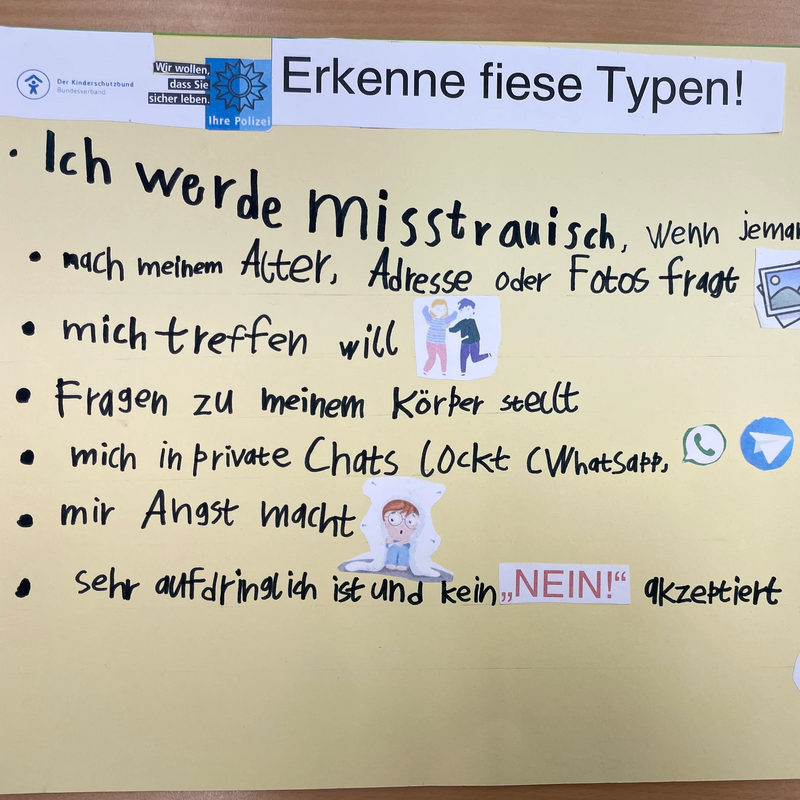 Der Kinderschutzbund
Bundesverband
Wir wollen,
dass Sie
sicher leben.
Ihre Polizei
Erkenne fiese Typen!
• Ich werde misstrauisch, wenn jeman
• nach meinem Alter, Adresse oder Fotos fragt
• mich treffen will
• Fragen zu meinem Körper stellt
• mich in private Chats lockt (WhatsApp,
• mir Angst macht
• sehr aufdringlich ist und kein „NEIN!“ akzeptiert